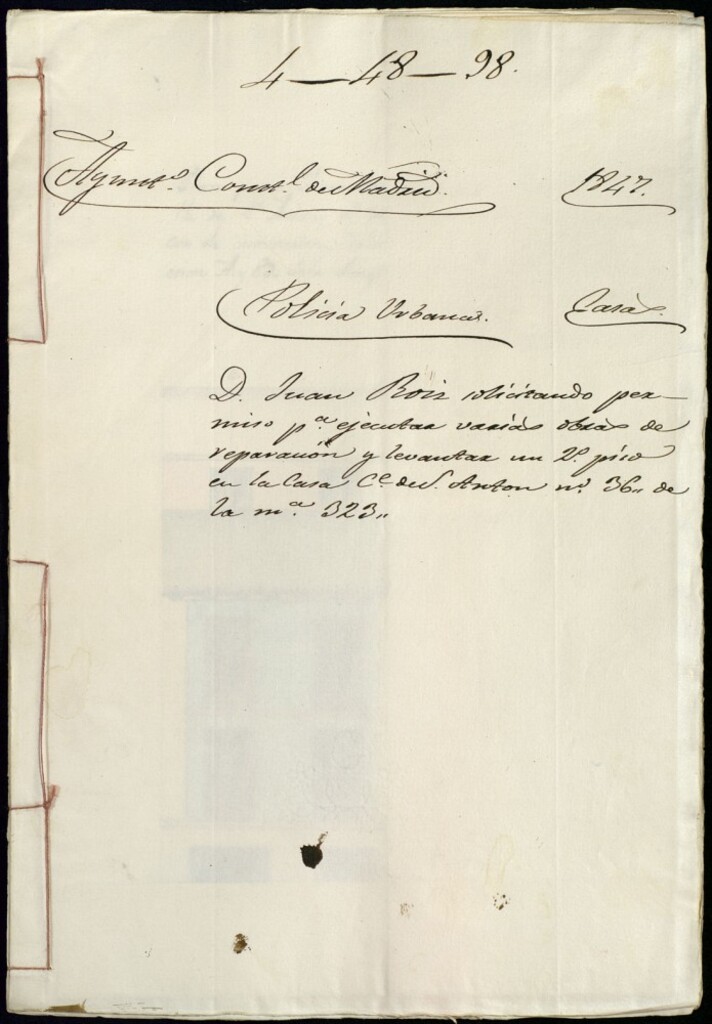 4-48-98.
Ayunto. Constl. de Madrid. 1847.
Policía Urbana. Casas.
D. Juan Roiz solicitando per-
miso pa. ejecutar varias obras de
reparación y levantar un 2o. piso
en la Casa Ce. de S. Anton no. 36,, de
la ma. 323,,